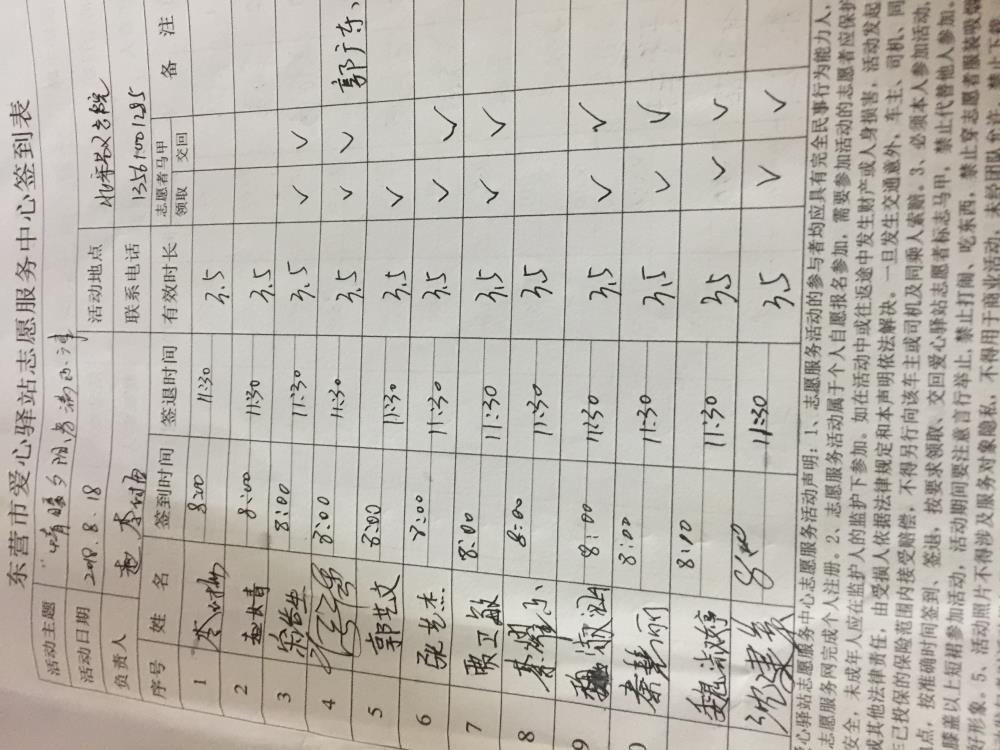 东营市爱心驿站志愿服务中心签到表
活动主题
活动日期 2018.8.18 活动地点
负责人 联系电话 13561001285
序号 姓 名 签到时间 签退时间 有效时长 志愿者马甲 领取 交回 备 注
1 8:00 11:30 3.5
2 8:00 11:30 3.5
3 8:00 11:30 3.5 ✓ ✓
4 8:00 11:30 3.5 ✓ ✓ 郭广东、
5 郭艺文 8:00 11:30 3.5 ✓
6 张艺杰 8:00 11:30 3.5 ✓ ✓
7 贾卫敏 8:00 11:30 3.5 ✓ ✓
8 8:00 11:30 3.5
9 8:00 11:30 3.5 ✓ ✓
秦慧丽 8:00 11:30 3.5 ✓ ✓
8:10 11:30 3.5 ✓ ✓
沈建美 8:00 11:30 3.5 ✓ ✓
心驿站志愿服务中心志愿服务活动声明：1、志愿服务活动的参与者均应具有完全民事行为能力人，
志愿服务网完成个人注册。2、志愿服务活动属于个人自愿报名参加，需要参加活动的志愿者应保护
安全，未成年人应在监护人的监护下参加。如在活动中或往返途中发生财产或人身损害，活动发起
或其他法律责任，由受损人依据法律规定和本声明依法解决。一旦发生交通意外，车主、司机、同
己投保的保险范围内接受赔偿，不得另行向该车主或司机及同乘人索赔。3、必须本人参加活动，
点，按准确时间签到、签退，按要求领取、交回爱心驿站志愿者标志马甲，禁止代替他人参加。
膝盖以上短裙参加活动，活动期间要注意言行举止，禁止打闹、吃东西，禁止穿志愿者服装吸烟
好形象。5、活动照片不得涉及服务对象隐私，不得用于商业活动，未经团队允许，禁止下载